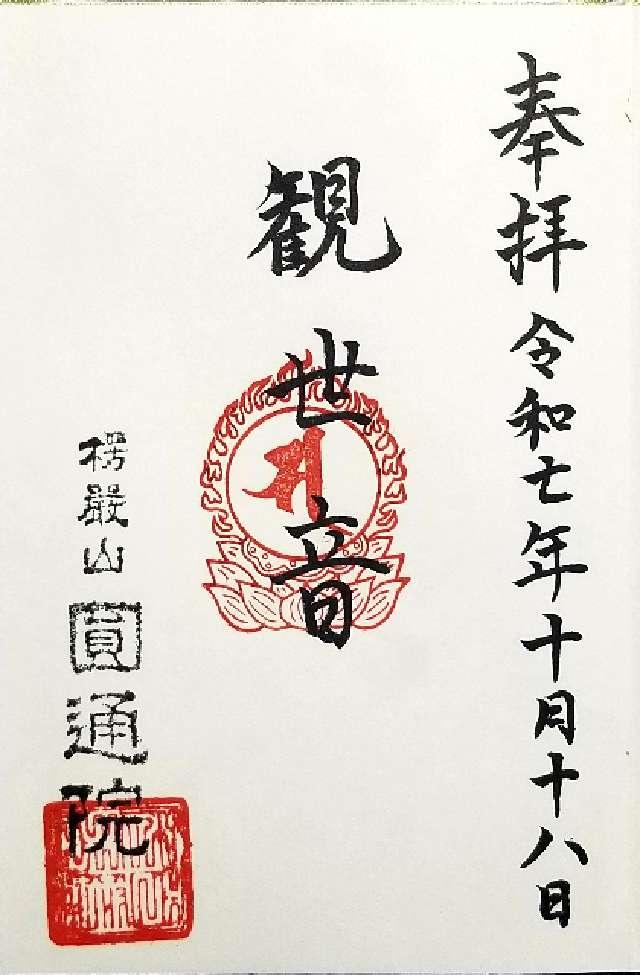 奉拝 令和七年十月十八日
観世音
楞嚴山 圓通院